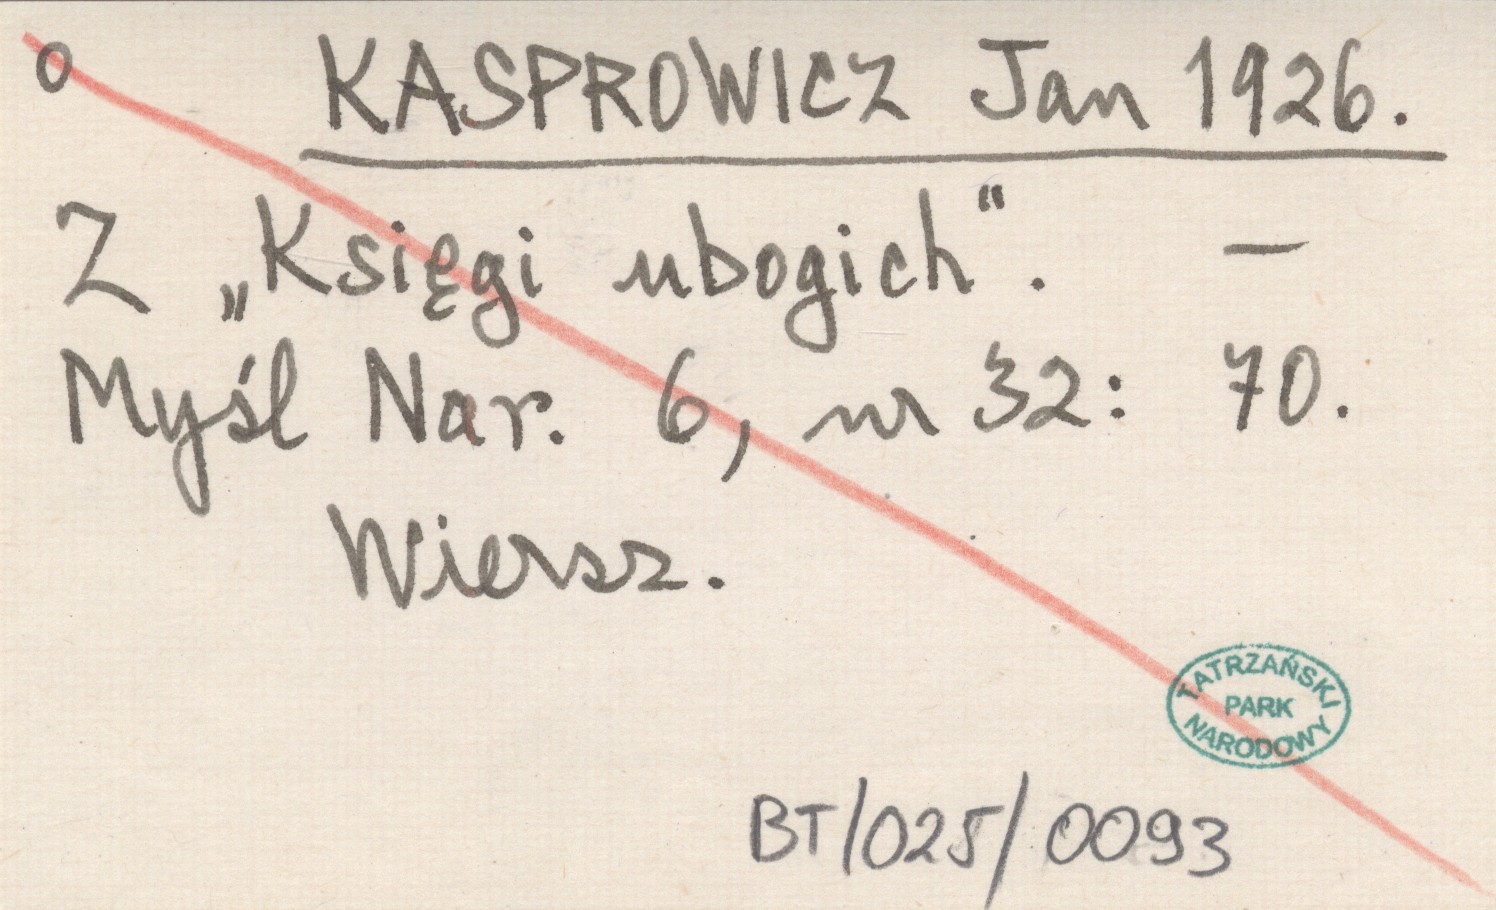 o
KASPROWICZ Jan 1926.
Z „Księgi ubogich". —
Myśl Nar. 6, nr 32: 70.
Wiersz.
TATRZAŃSKI
PARK
NARODOWY
BT/025/0093